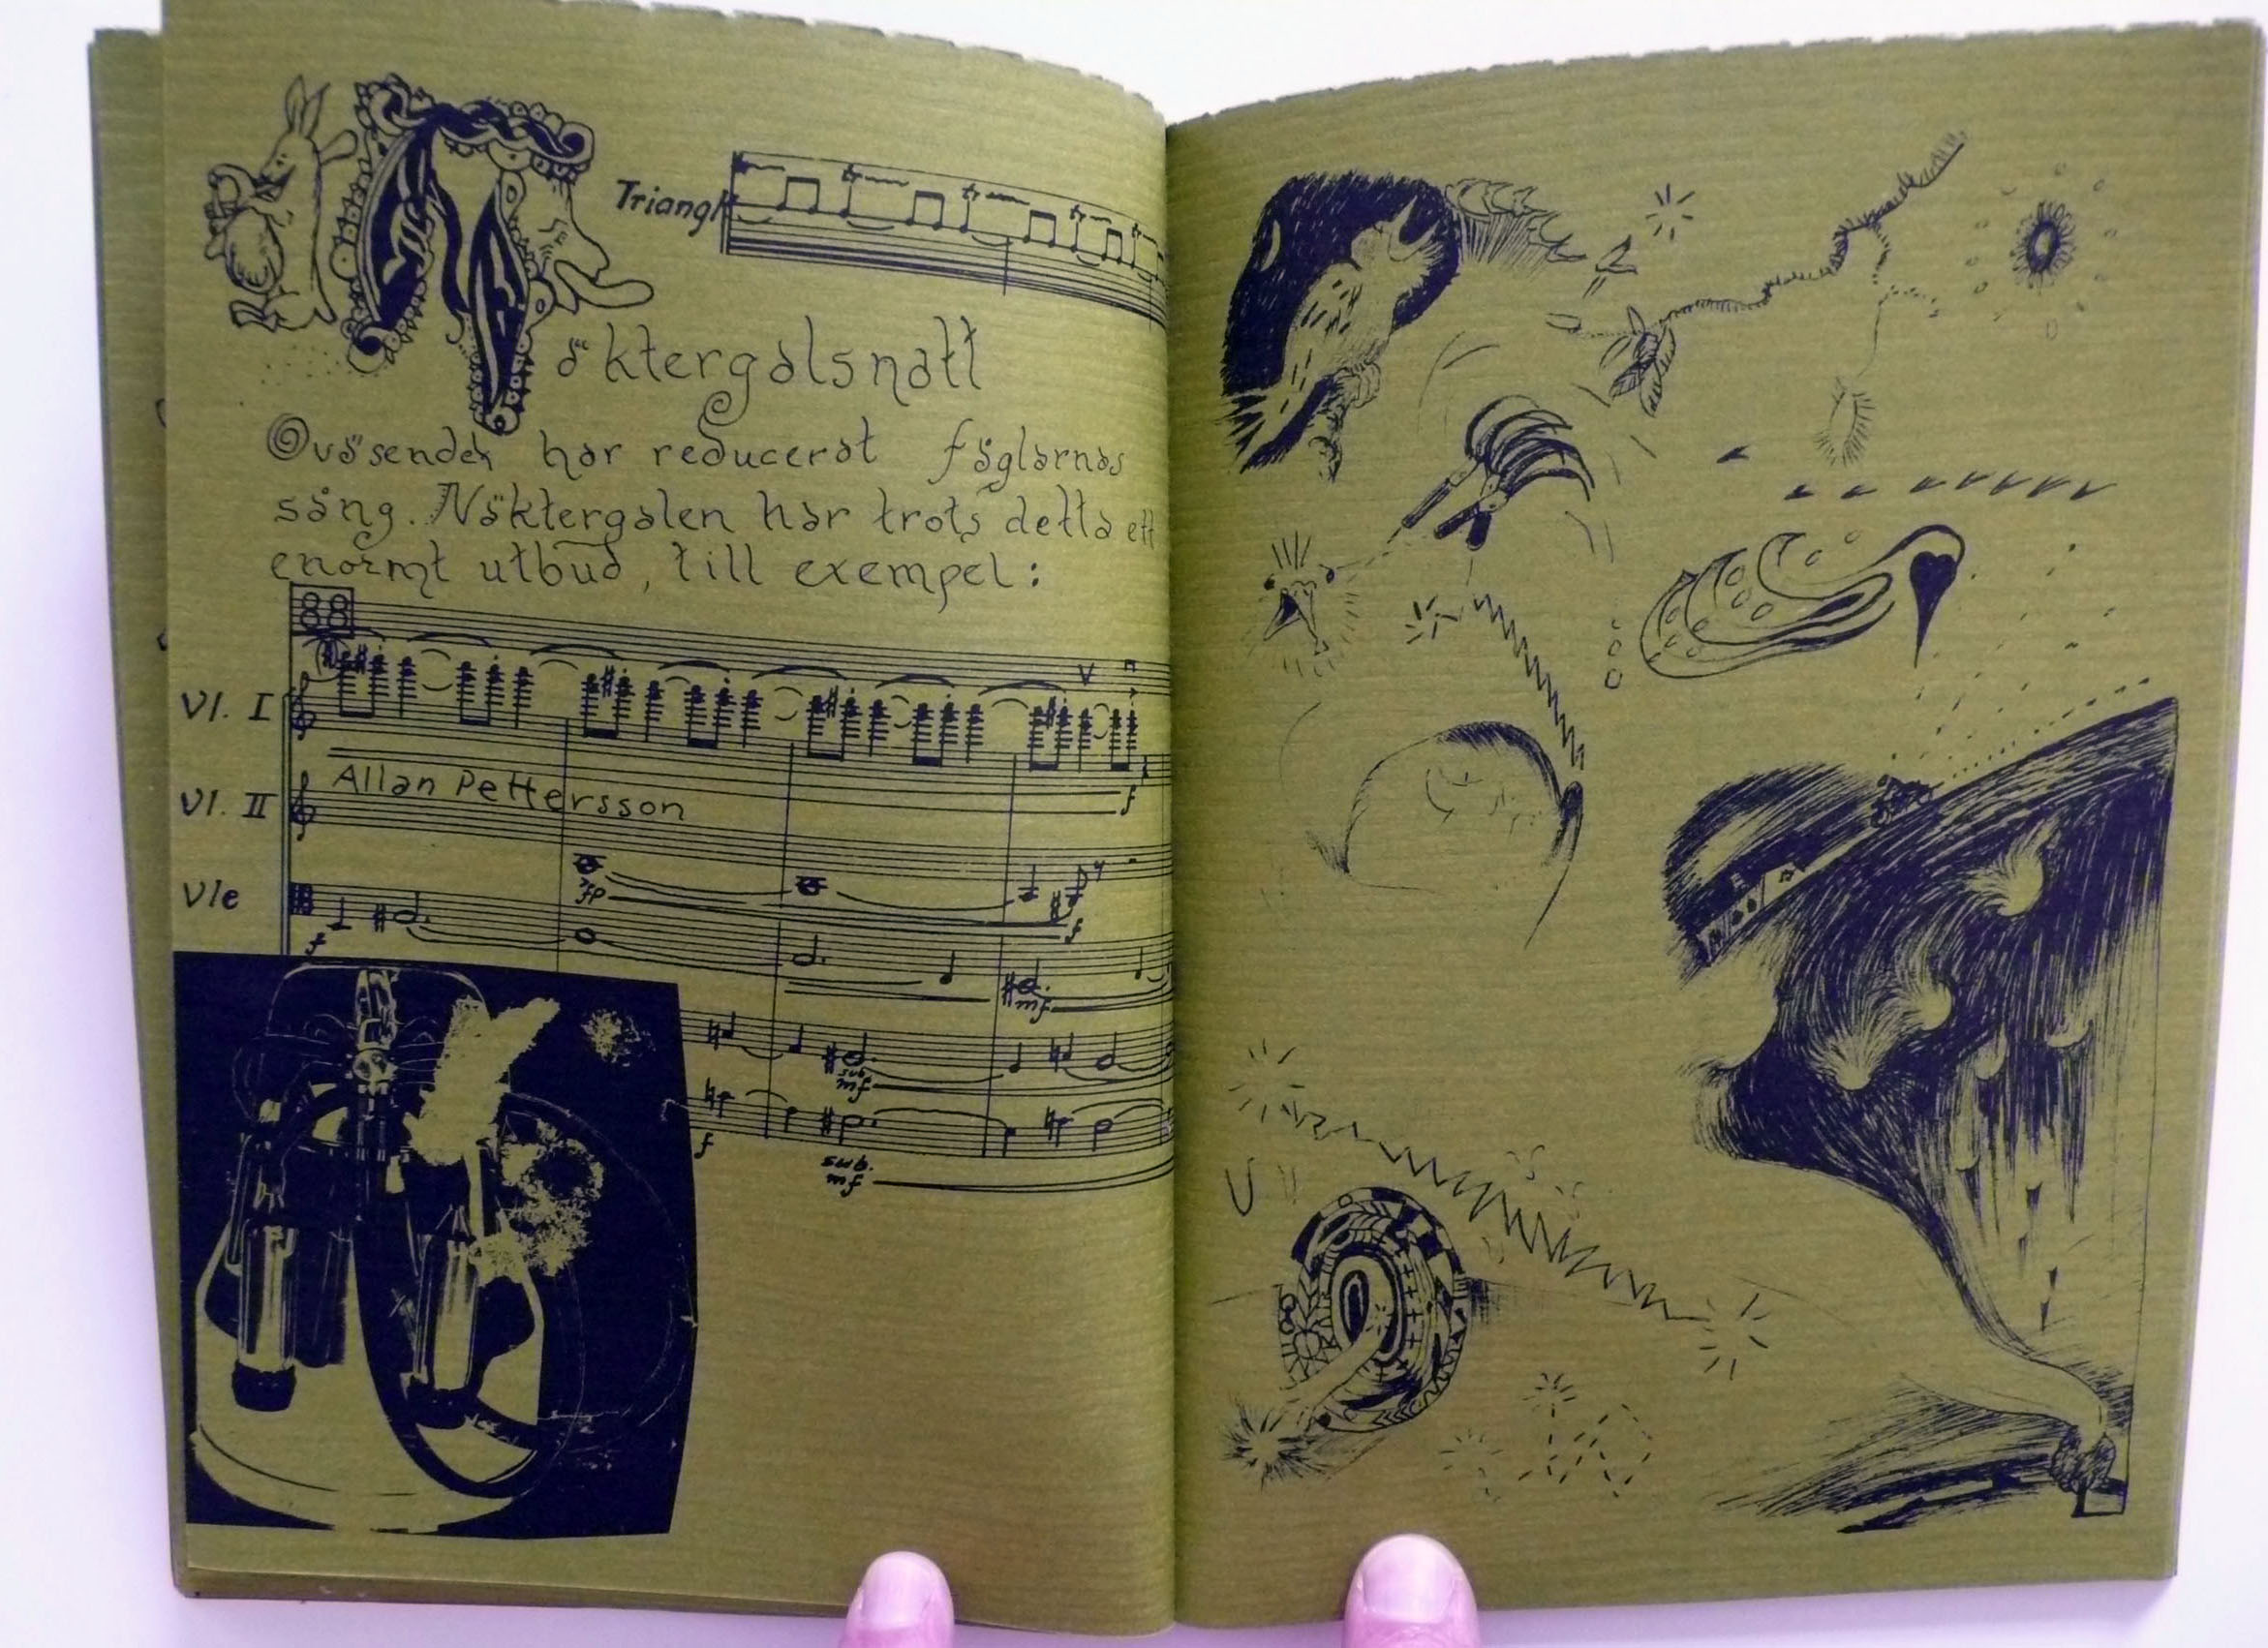 Triangl
Näktergalsnatt
Oväsendet har reducerat fåglarnas
sång. Näktergalen har trots detta ett
enormt utbud, till exempel:
88
Vl. I
Allan Pettersson
Vl. II
f
Vle
fp
f
f
mf
sub.
mf
f
sub.
mf